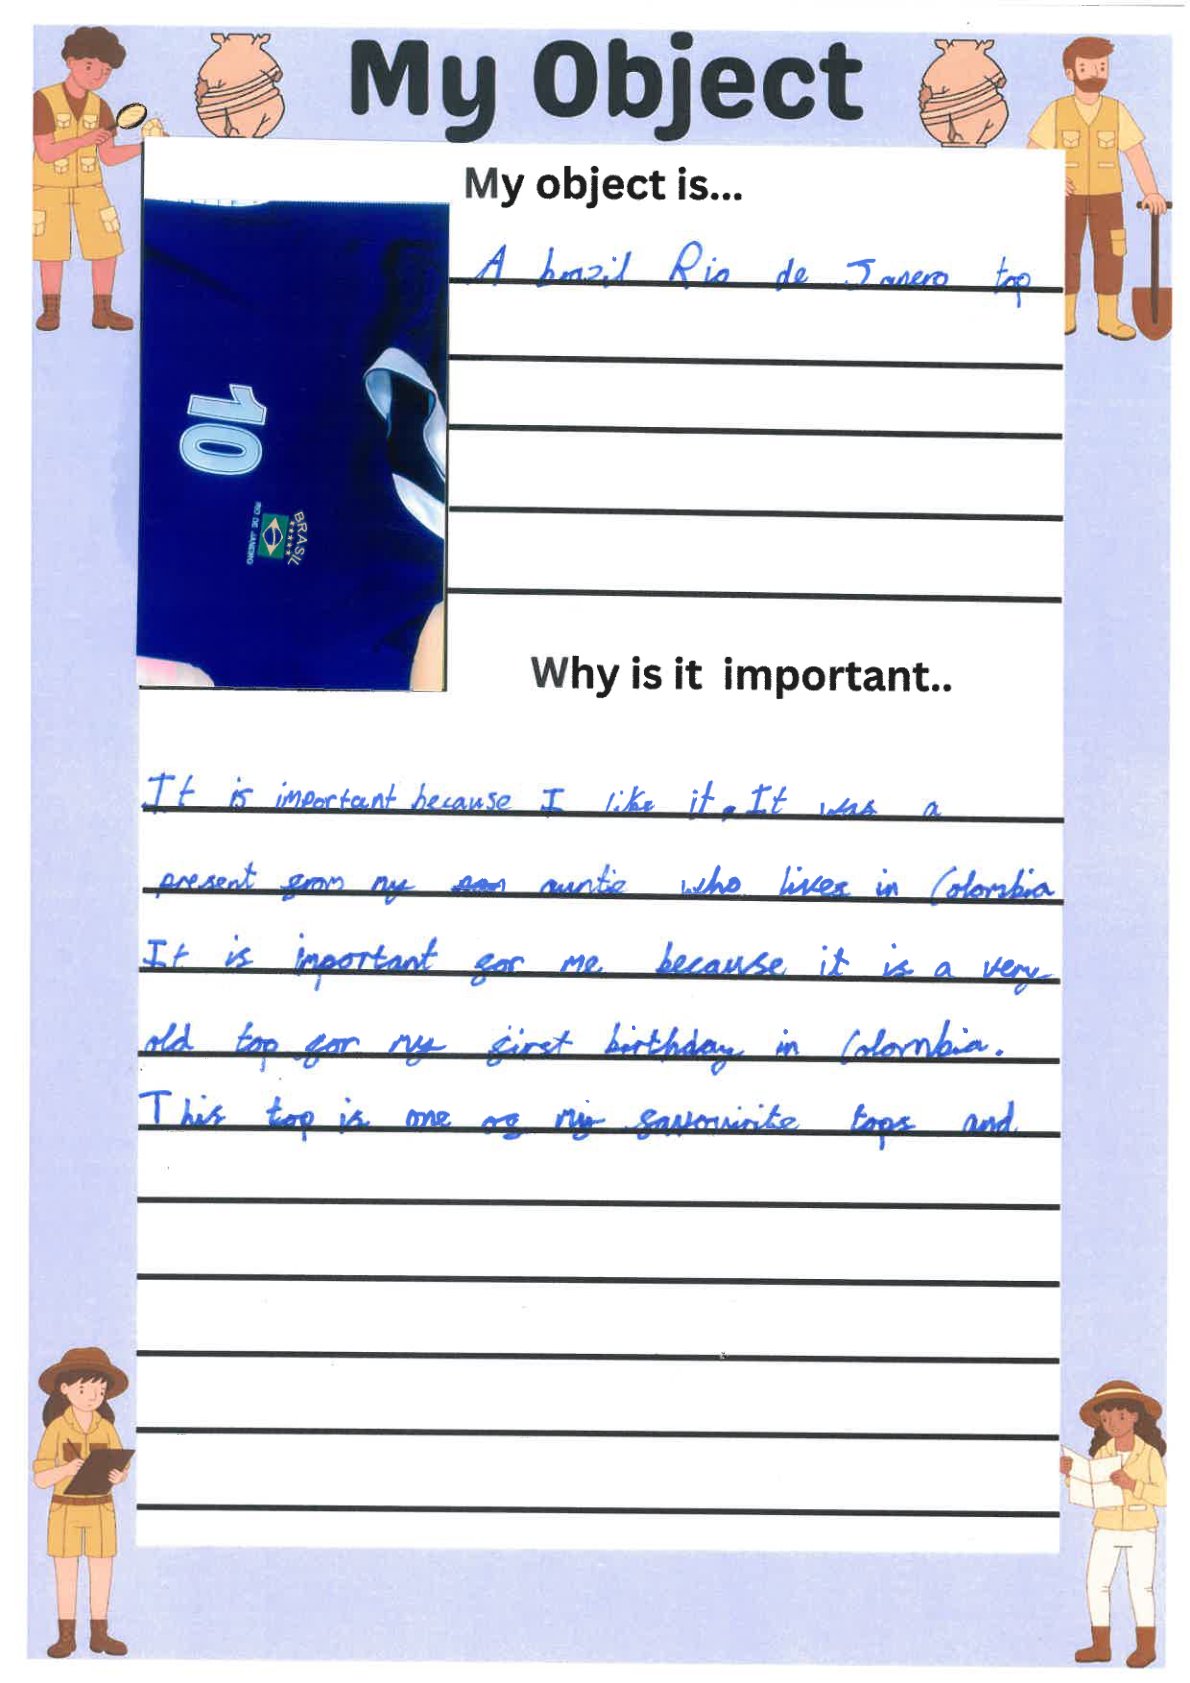 My Object
My object is...
A brazil Rio de Janero top
10
BRASIL
RIO DE JANEIRO
Why is it important..
It is important because I like it. It was a
present from my auntie who lives in Colombia
It is important for me because it is a very
old top for my first birthday in Colombia.
This top is one of my favouirite tops and